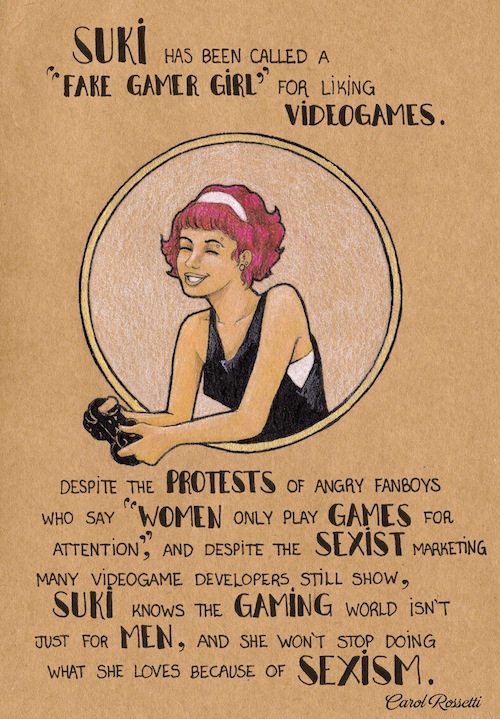 SUKI HAS BEEN CALLED A
"FAKE GAMER GIRL" FOR LIKING
VIDEOGAMES.
DESPITE THE PROTESTS OF ANGRY FANBOYS
WHO SAY "WOMEN ONLY PLAY GAMES FOR
ATTENTION", AND DESPITE THE SEXIST MARKETING
MANY VIDEOGAME DEVELOPERS STILL SHOW,
SUKI KNOWS THE GAMING WORLD ISN'T
JUST FOR MEN, AND SHE WON'T STOP DOING
WHAT SHE LOVES BECAUSE OF SEXISM.
Carol Rossetti